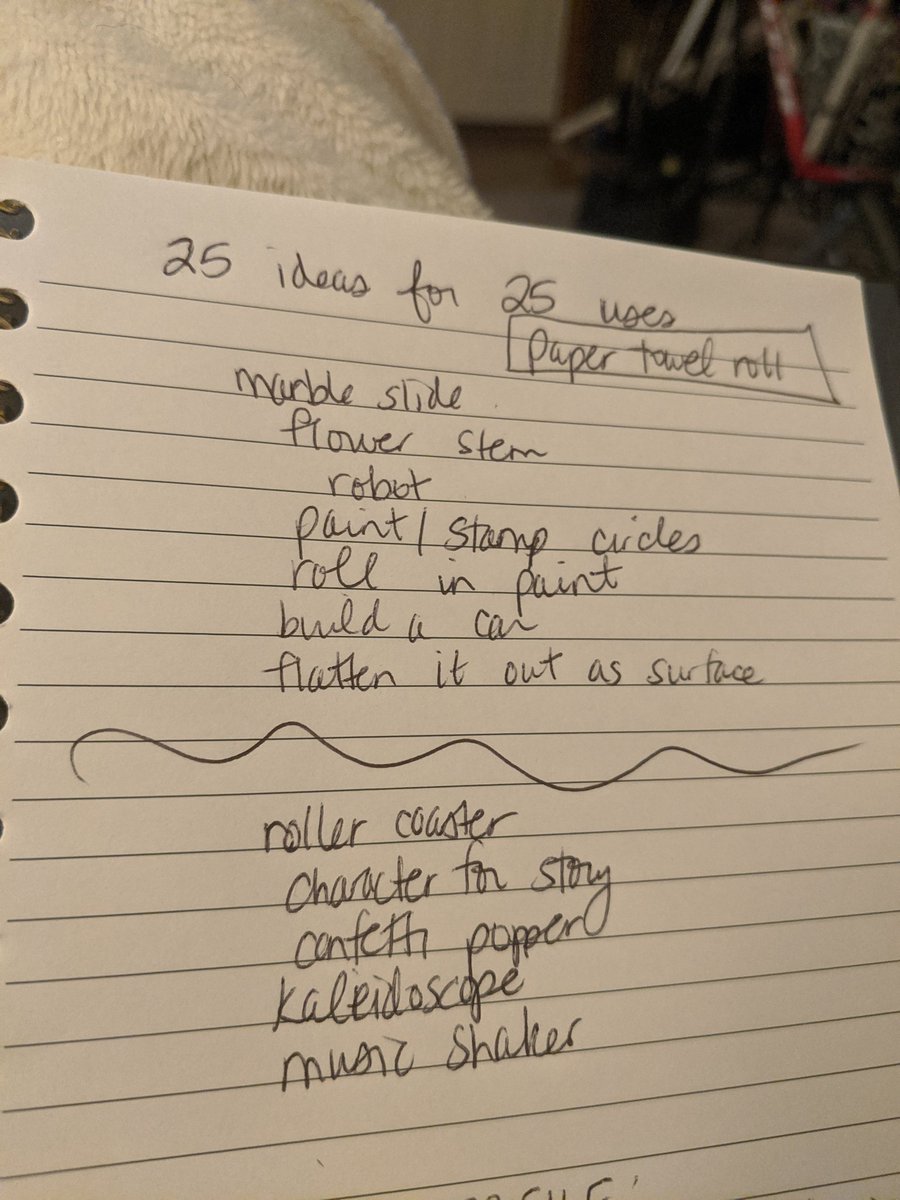 25 ideas for 25 uses
paper towel roll
marble slide
flower stem
robot
paint/stamp circles
roll in paint
build a car
flatten it out as surface
roller coaster
character for story
confetti popper
kaleidoscope
music shaker